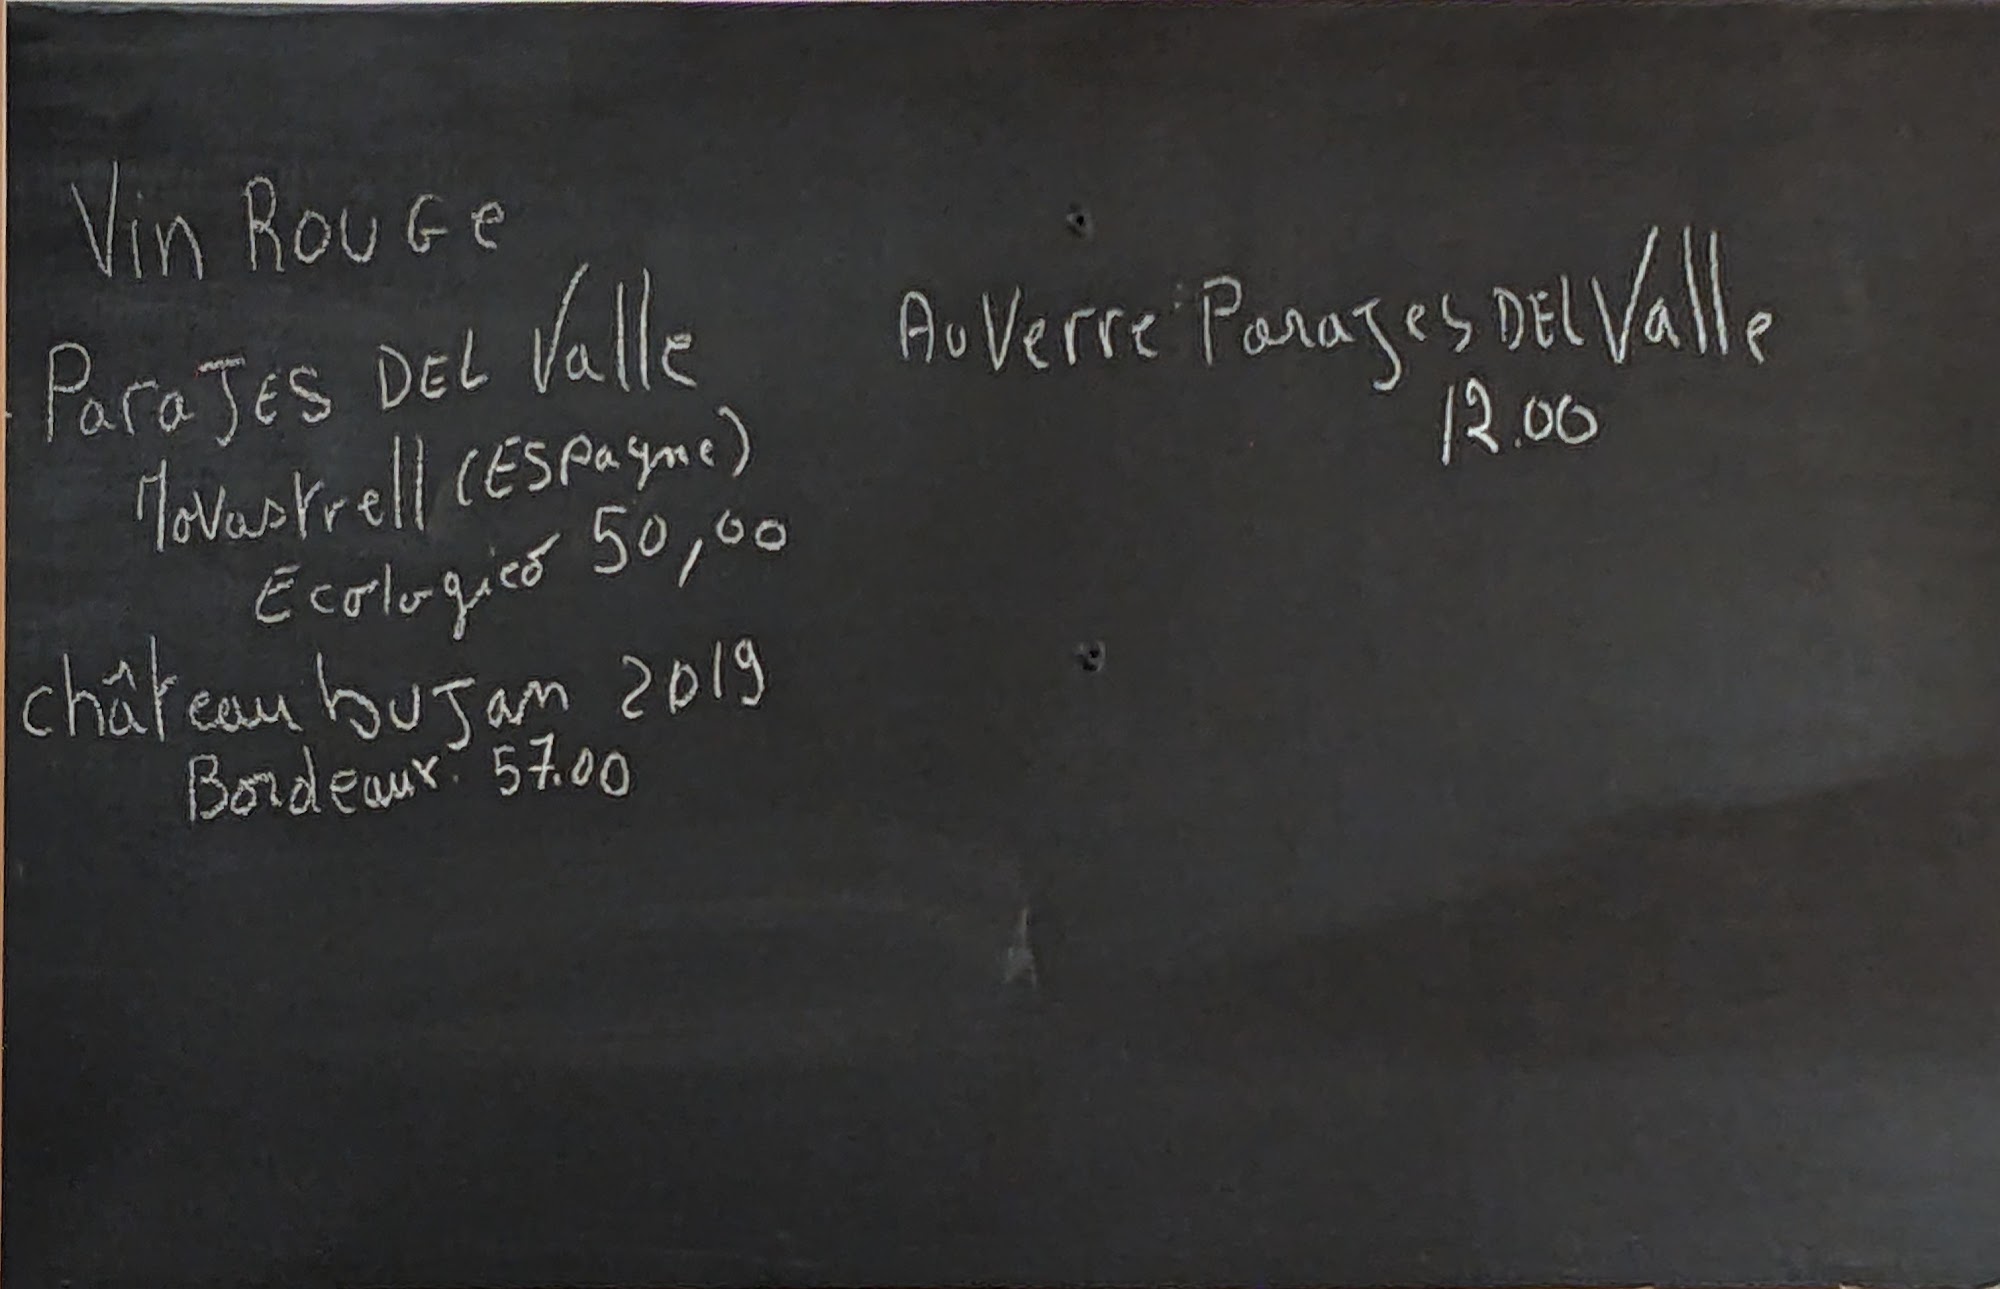 Vin ROUGe
ParaJES DEL Valle
Movastrell (ESPagne)
Ecologico 50,00
château buJan 2019
Bordeaux. 57.00
Au Verre: ParaJes DEL Valle
12.00